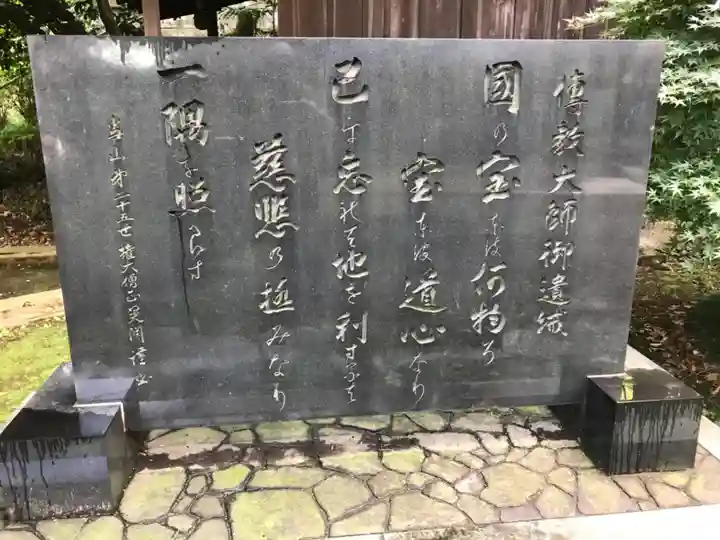 傳教大師御遺誡
國の宝とは何物ぞ
宝とは道心なり
己を忘れて他を利するは
慈悲の極みなり
一隅を照らす
当山第二十五世 権大僧正 謹書